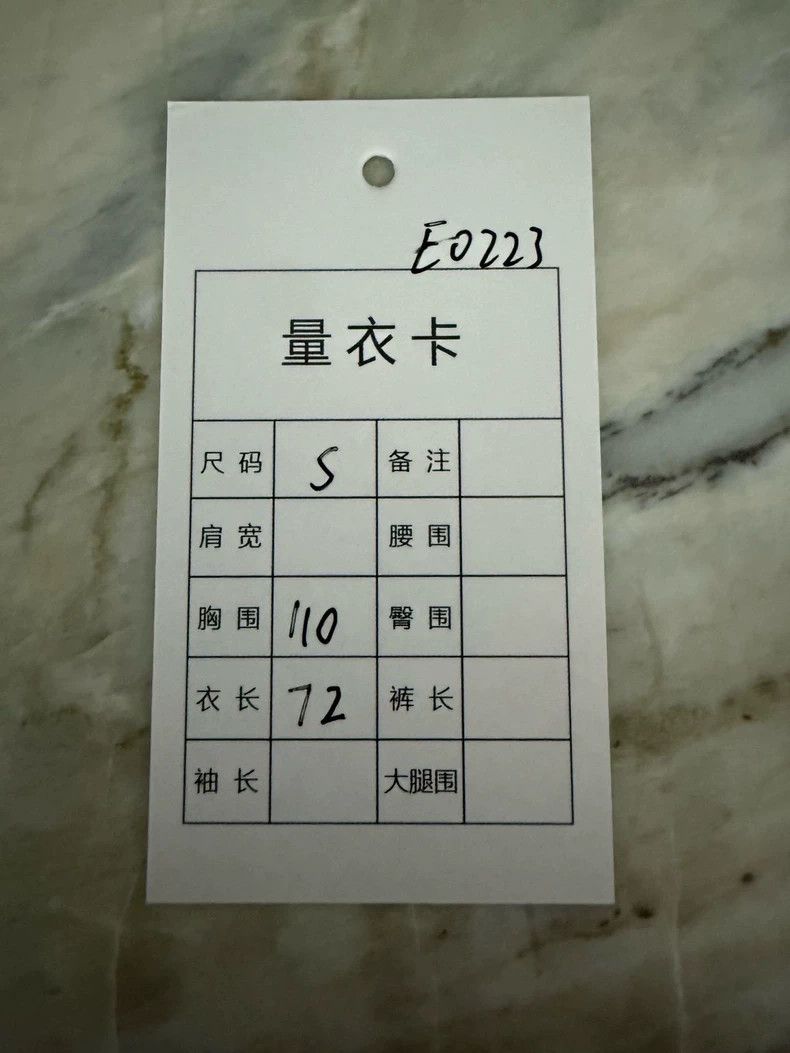 E0223
量衣卡
尺码 S 备注
肩宽 腰围
胸围 110 臀围
衣长 72 裤长
袖长 大腿围